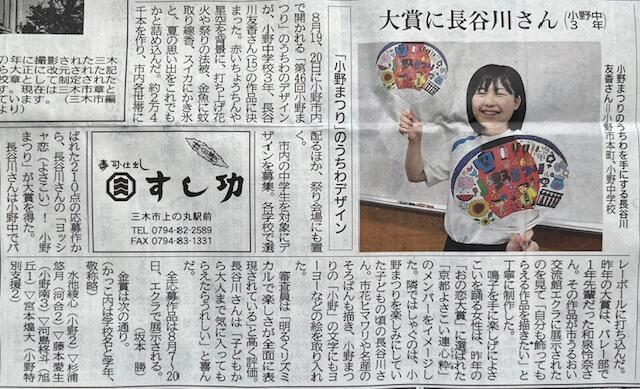 大賞に長谷川さん(小野中3年)
「小野まつり」のうちわデザイン
小野まつりのうちわを手にする長谷川
友香さん=小野市本町、小野中学校
8月19、20日に小野市内
で開かれる「第46回小野ま
つり」のうちわのデザイン
が、小野中学校3年、長谷
川友香さん(15)の作品に決
まった。赤いちょうちんや
星空を背景に、打ち上げ花
火や祭りの法被、金魚に蚊
取り線香、スイカにかき氷
と、夏の思い出をこれでも
かと詰め込んだ。約2万4
千本を作り、市内各世帯に
配るほか、祭り会場にも置
く。
市内の中学生を対象にデ
ザインを募集。各学校で選
ばれた210点の応募作か
ら、長谷川さんの「ヨッシ
ャ恋(よさこい)!小野
まつり」が大賞を得た。
長谷川さんは小野中でバ
レーボールに打ち込んだ。
昨年の大賞は、バレー部で
1年先輩だった和泉怜奈さ
ん。その作品が市うるおい
交流館エクラに展示された
のを見て「自分も飾っても
らえる作品を描きたい」と
丁寧に制作した。
鳴子を手に楽しげによさ
こいを踊る女性は、昨年の
「おの恋大賞」に選ばれた
「京都よさこい連心粋」
のメンバーをイメージし
た。隣ではしゃぐのは、小
野まつりを楽しみにしてい
た子どもの頃の長谷川さ
ん。市花ヒマワリや名産の
そろばんも描き、小野まつ
り「小野」の文字にもヨ
ーヨーなどの絵を取り入れ
た。
審査員は「明るくリズミ
カルで楽しさが全面に表
現されている」と高く評価。
長谷川さんは「子どもか
ら大人まで気に入っても
らえたらうれしい」と喜ん
だ。
全応募作品は8月7~20
日、エクラで展示される。
(坂本 勝)
金賞は次の通り。
(かっこ内は学校名と学年、
敬称略)
水池綾心(小野2)▽杉浦
悠月(河合2)▽藤本愛生
(小野南3)▽河島姫斗(旭
丘1)▽宮本煌大(小野特
別支援2)
寿司仕出し
すし功
三木市上の丸駅前
TEL 0794-82-2589
FAX 0794-83-1331
に撮影された三木
ら大正に改元された記
校章として制定された
ています。現在は三木市章と
(三木市編
より)
小野まつり